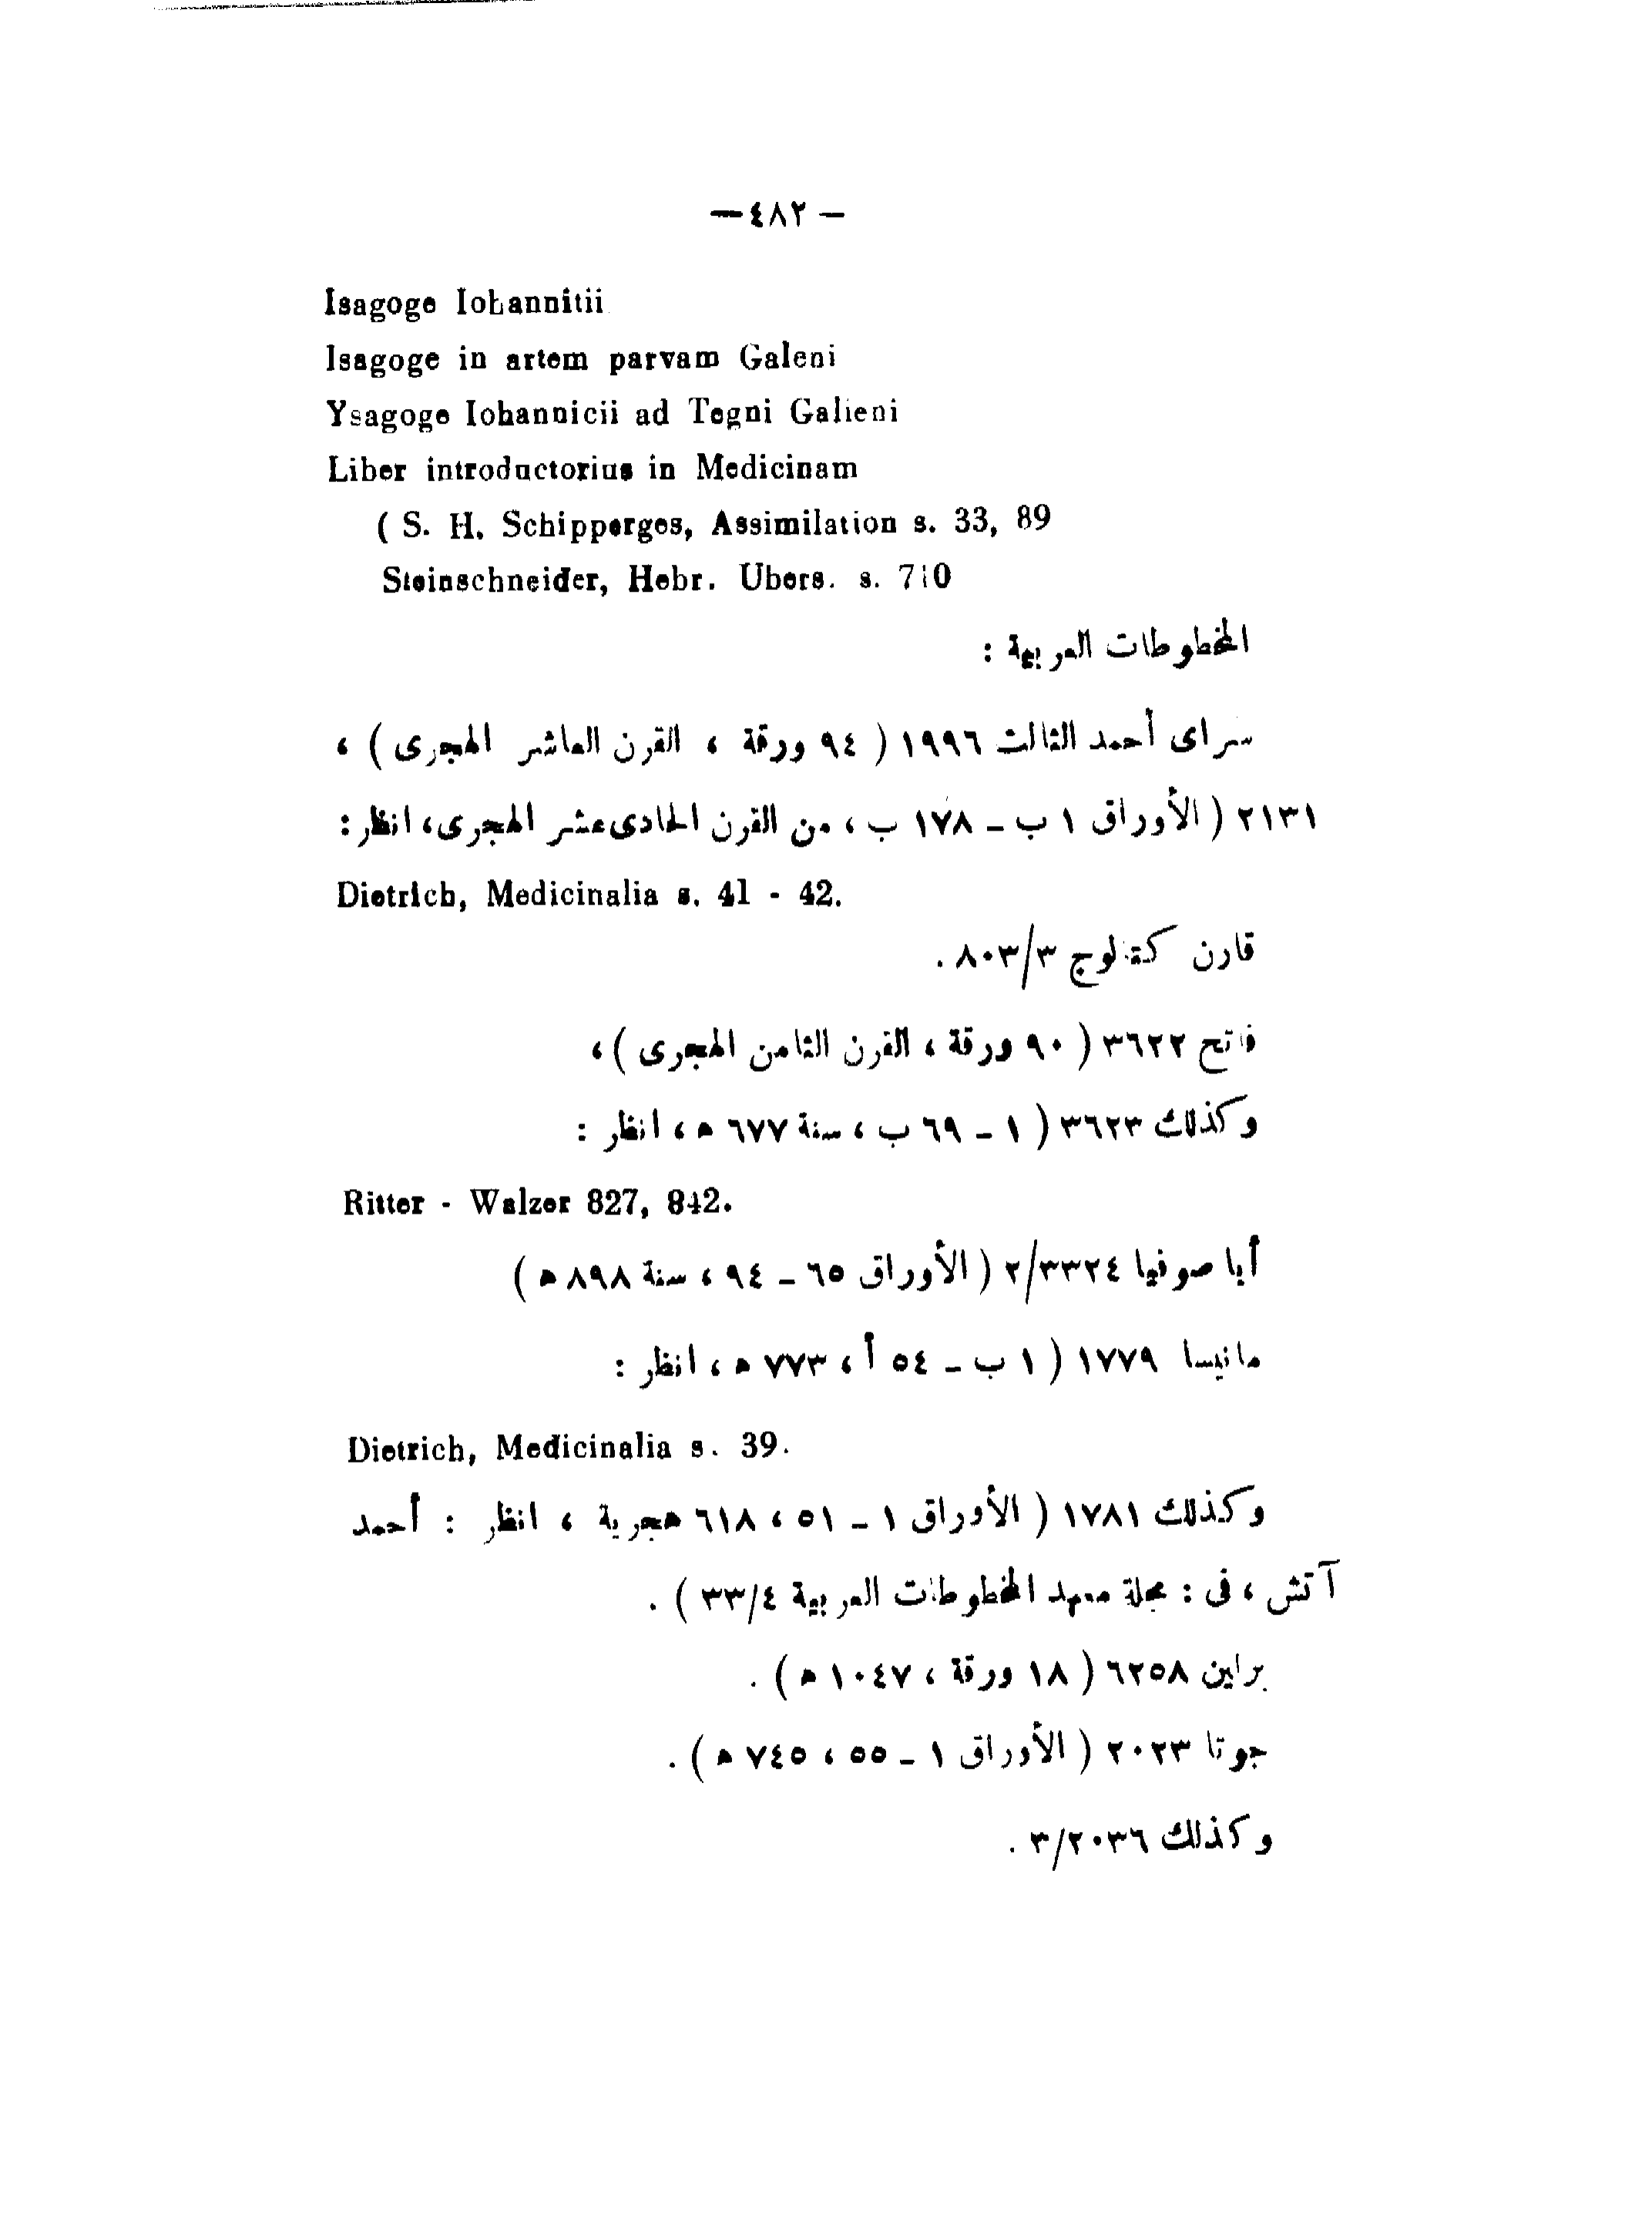 —٤٨٢ —
Isagoge Iohannitii
Isagoge in artem parvam Galeni
Ysagoge Iohannicii ad Tegni Galieni
Liber introductorius in Medicinam
( S. H. Schipperges, Assimilation s. 33, 89
Steinschneider, Hebr. Ubers. s. 710
المخطوطات العربية :
سراى أحمد الثالث ١٩٩٦ ( ٩٤ ورقة ، القرن العاشر الهجرى ) ،
٢١٣١ ( الأوراق ١ ب – ١٧٨ ب ، من القرن الحادى عشر الهجرى، انظر :
Dietrich, Medicinalia s. 41 - 42.
قارن كتالوج ٨٠٣/٣ .
فاتح ٣٦٢٢ ( ٩٠ ورقة ، القرن الثامن الهجرى ) ،
وكذلك ٣٦٢٣ ( ١ – ٦٩ ب ، سنة ٦٧٧ ه ، انظر :
Ritter - Walzer 827, 842.
أيا صوفيا ٢/٣٣٢٤ ( الأوراق ٦٥ – ٩٤ ، سنة ٨٩٨ ه )
مانيسا ١٧٧٩ ( ١ ب – ٥٤ أ ، ٧٧٣ ه ، انظر :
Dietrich, Medicinalia s. 39.
وكذلك ١٧٨١ ( الأوراق ١ – ٥١ ، ٦١٨ هجرية ، انظر : أحمد
آتش ، فى : مجلة معهد المخطوطات العربية ٣٣/٤ ) .
برلين ٦٢٥٨ ( ١٨ ورقة ، ١٠٤٧ ه ) .
جوتا ٢٠٢٣ ( الأوراق ١ – ٥٥ ، ٧٤٥ ه ) .
وكذلك ٣/٢٠٣٦ .